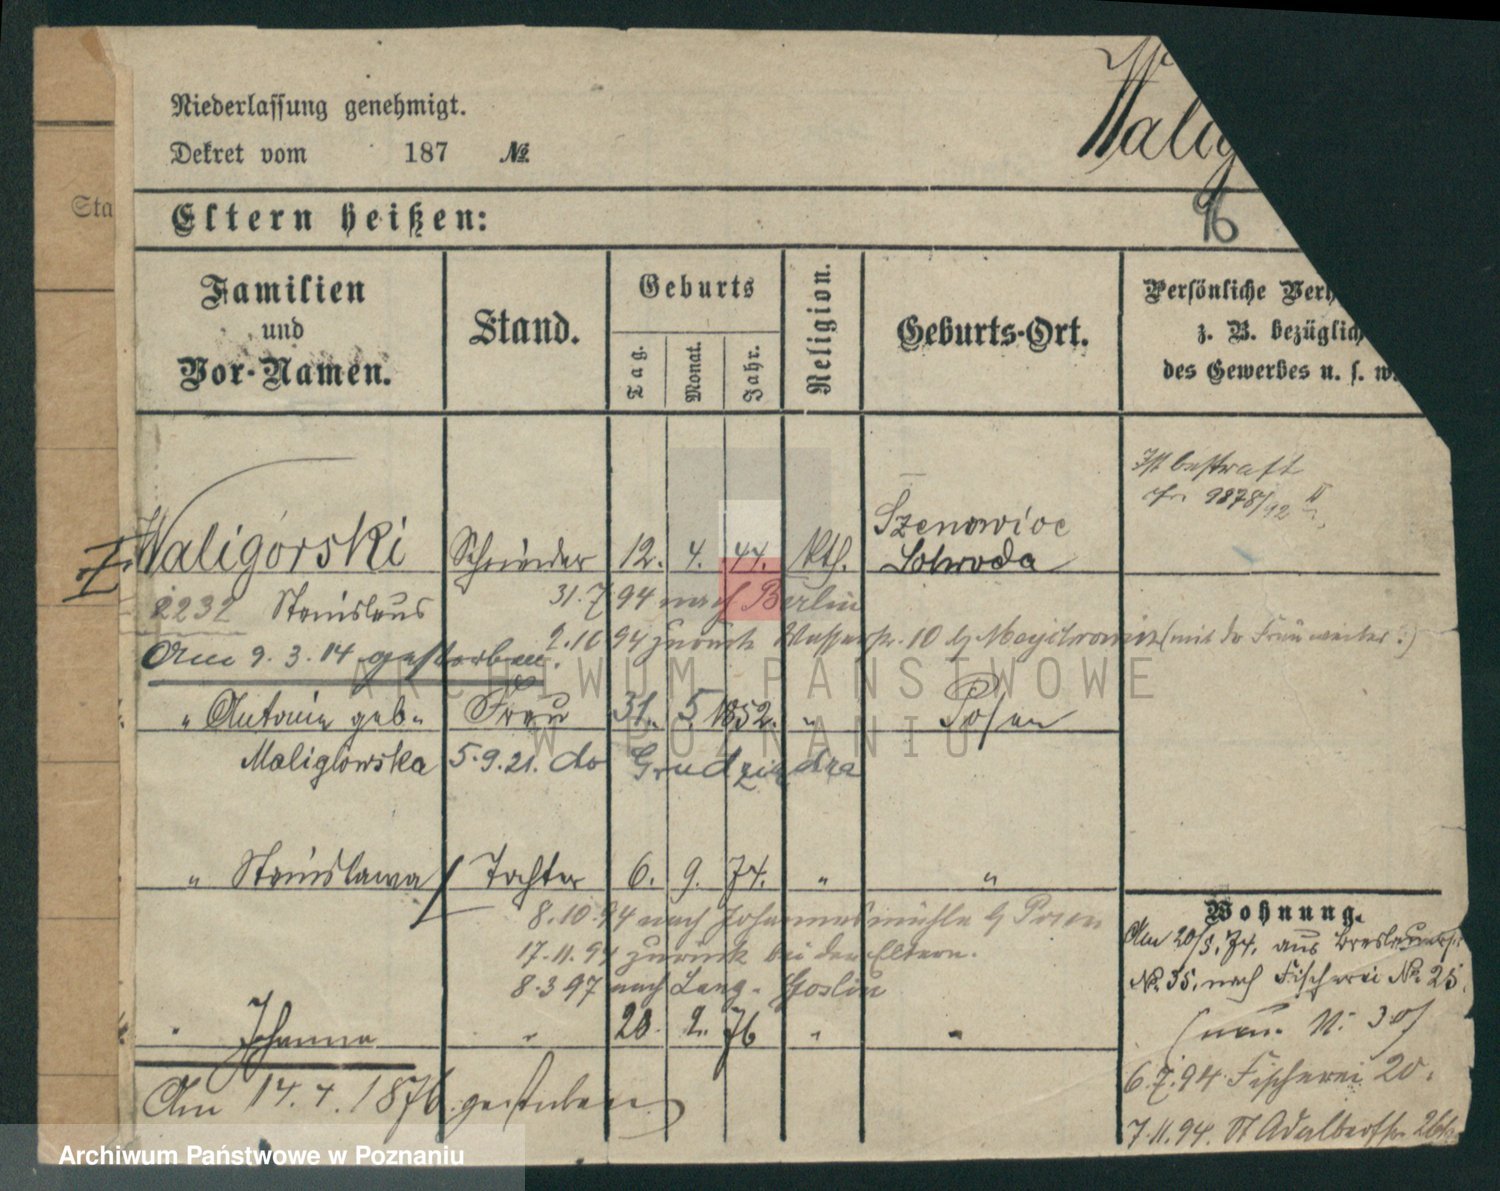 Niederlassung genehmigt.
Dekret vom 187 №
Walig
96
Sta
Eltern heißen:
Familien
und
Vor-Namen.
Stand.
Geburts
Tag.
Monat.
Jahr.
Religion.
Geburts-Ort.
Persönliche Verh
z. B. bezüglich
des Gewerbes u. s. w.
Ist bestraft
9878/92 II
Waligórski Schneider 12. 4. 44. kth.
2232 Stanislaus
31.7.94 nach Berlin
2.10.94 zurück 10 (mit der Frau weiter.)
Am 9. 3. 14 gestorben.
" Antonie geb. Frau 31. 5 1852. " Posen
5.9.21. do Grudziądza
" Stanislawa Tochter 6. 9. 74. " "
8.10.94 nach Johannesmühle b Posen
17.11.94 zurück bei den Eltern.
8.3.97 nach Lang-Goslin
" Johanna " 20. 2. 76 " "
Am 14. 4. 1876 gestorben
Wohnung.
Am 20/3. 74. aus Breslauerstr
№ 35. nach Fischerei № 25
(neu. N: 30)
6.7.94 Fischerei 20.
7.11.94. St Adalbertstr.
ARCHIWUM PAŃSTWOWE
W POZNANIU
Archiwum Państwowe w Poznaniu